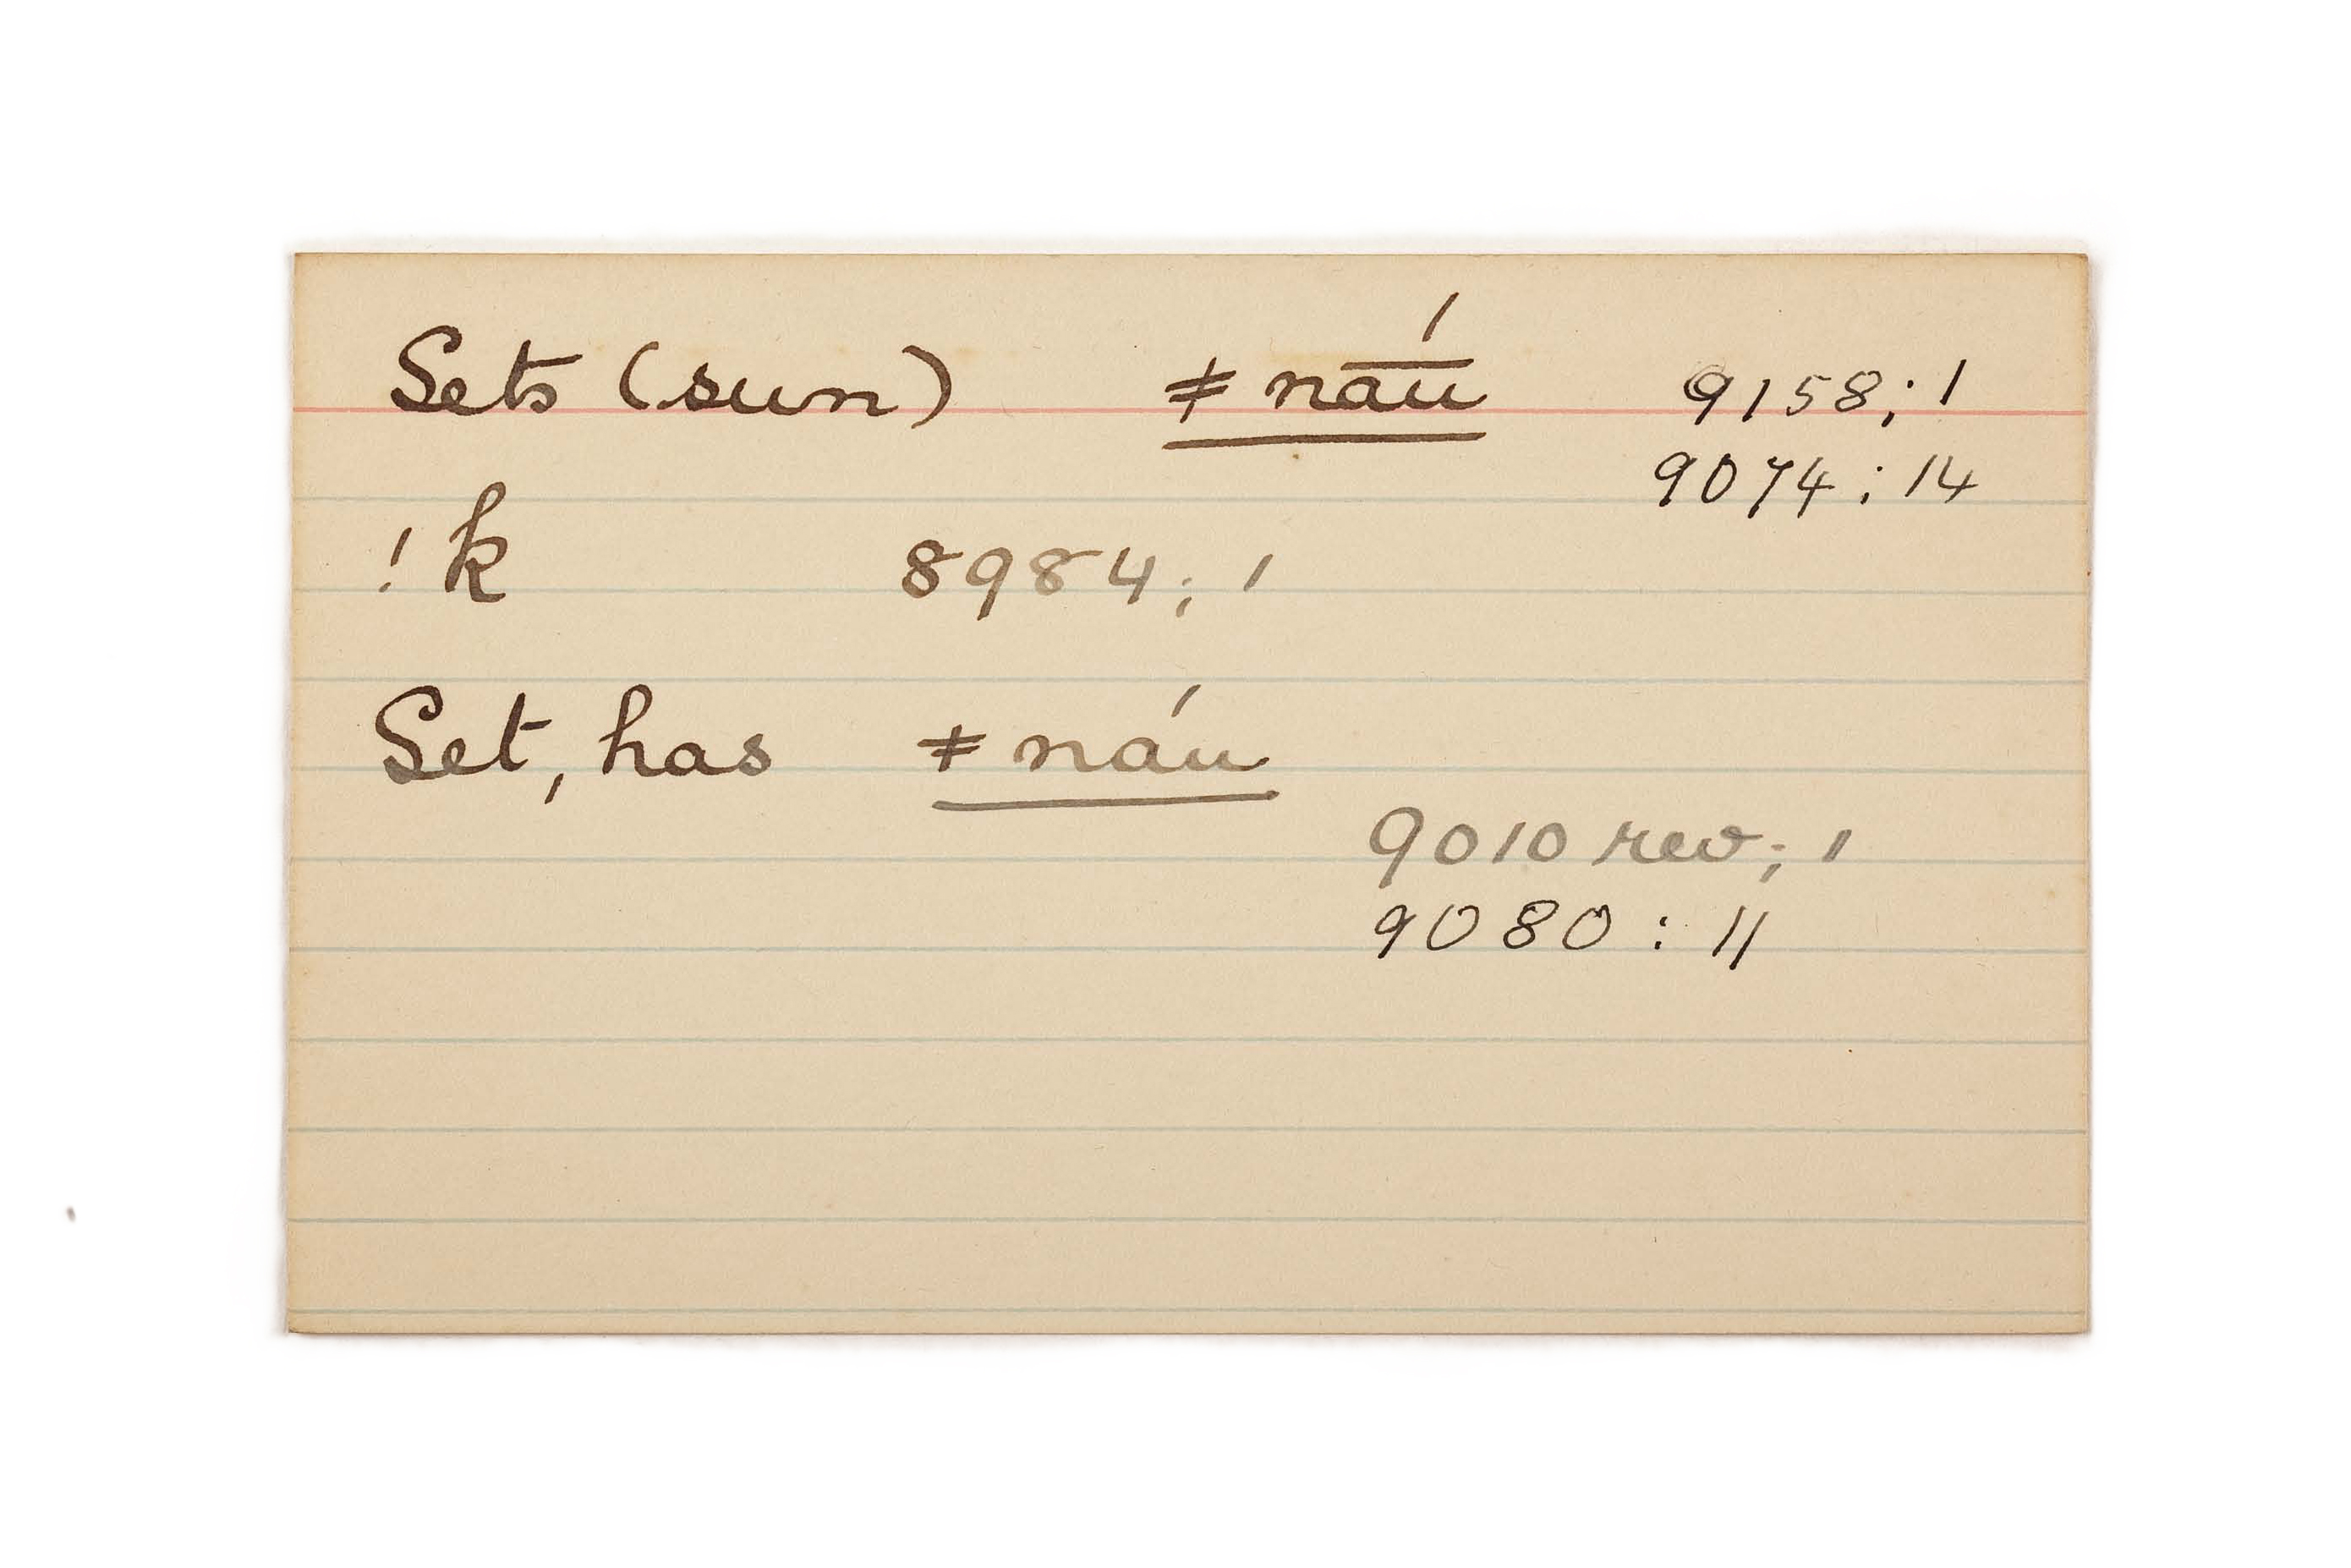 Sets (sun) ǂnā́ū 9158; 1
9074; 14
!k 8984; 1
Set, has ǂnáu
9010 rev; 1
9080 : 11